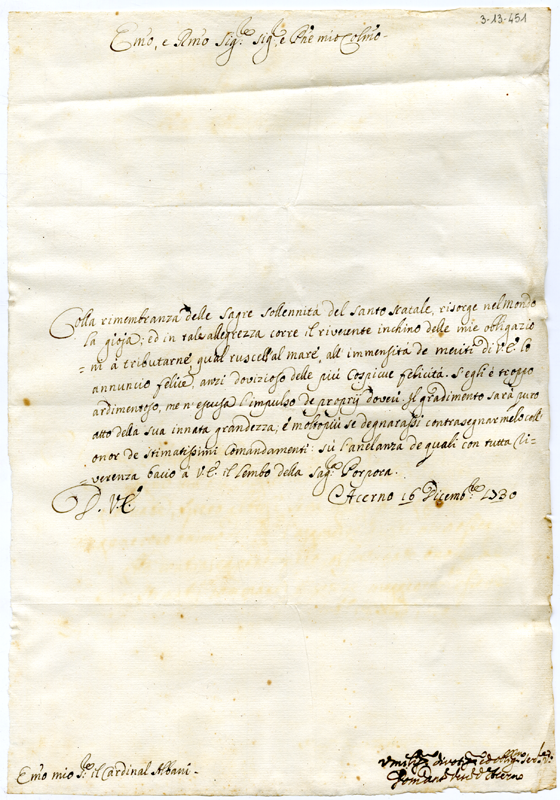 3-13-451
Emo, e Rmo Sig.re Sig.re e Pne mio Colmo.
Colla rimembranza delle Sagre Sollennità del Santo Natale, risorge nel mondo
la gioja; ed in tale allegrezza corre il riverente inchino delle mie obligazio
=ni a tributarne qual ruscell' al mare, all' immensità de meriti di V.E. lo
annuncio felice, anzi dovizioso delle più Cospicue felicità. S'egli è troppo
ardimentoso, me n'escusa l'impulso de proprij doveri. Il gradimento sarà puro
atto della sua innata grandezza; e molto più se degnarassi contrasegnarmelo coll'
onor de Stimatissimi Comandamenti: sù l'anelanza de quali con tutta ri-
verenza bacio a V.E. il lembo della Sag.ra Porpora.
D. V.E.
Acerno 16 Dicemb.re 1730
Emo mio S.re il Cardinal Albani.